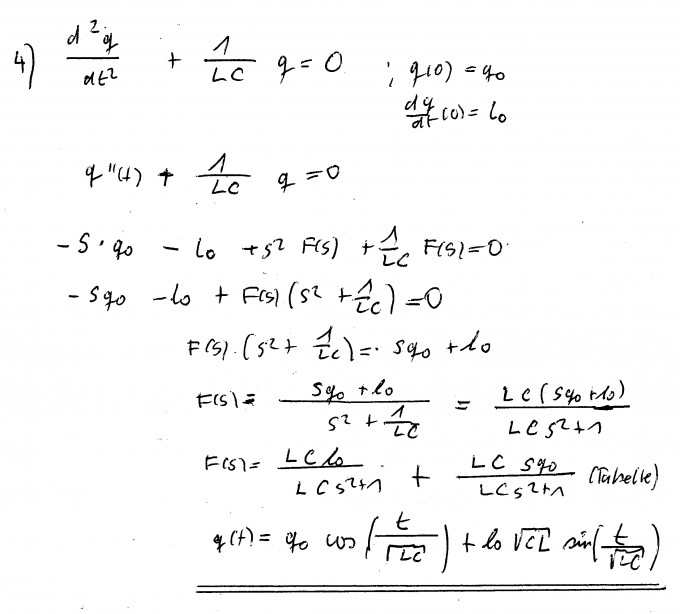 4) d²q/dt² + 1/LC q = 0 ; q(0) = q₀
dq/dt (0) = i₀
q''(t) + 1/LC q = 0
-s·q₀ - i₀ + s² F(s) + 1/LC F(s) = 0
-sq₀ - i₀ + F(s) (s² + 1/LC) = 0
F(s)·(s² + 1/LC) = sq₀ + i₀
F(s) = (sq₀ + i₀)/(s² + 1/LC) = LC(sq₀ + i₀)/(LCs² + 1)
F(s) = LC i₀/(LCs² + 1) + LC sq₀/(LCs² + 1) (Tabelle)
q(t) = q₀ cos(t/√LC) + i₀ √CL sin(t/√LC)